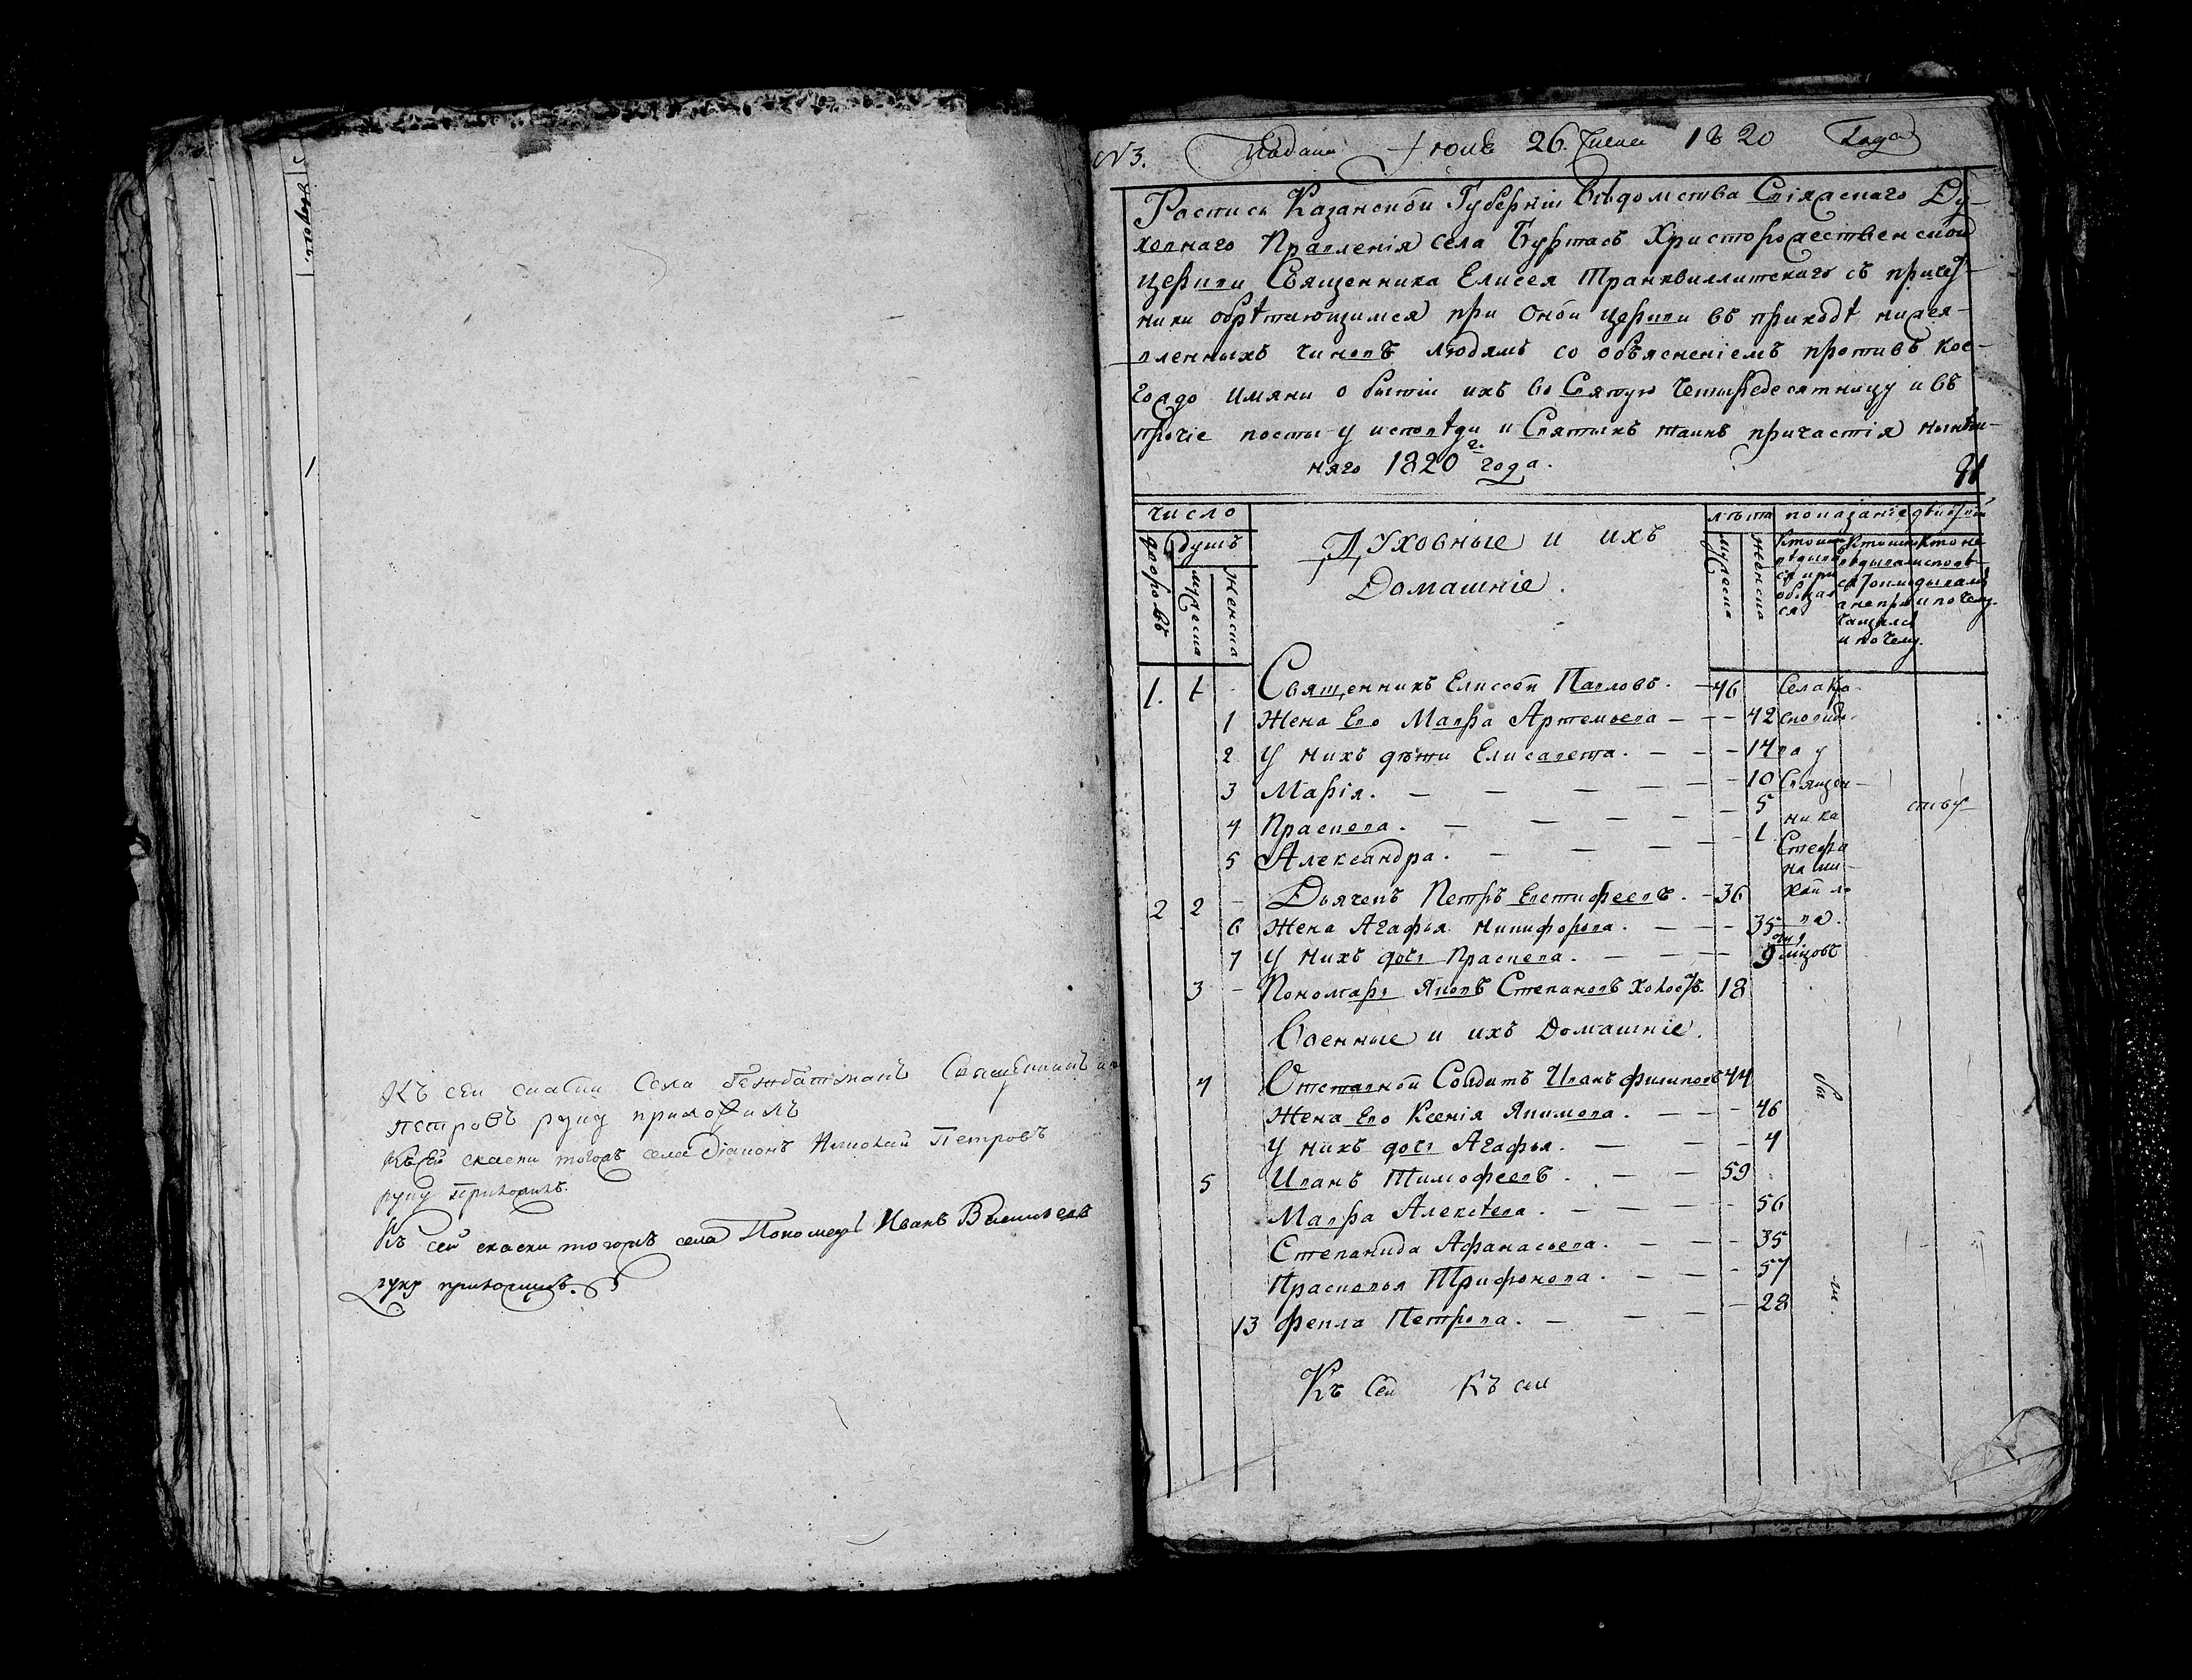 Къ сей скаски Села Священникъ
Петровъ руку приложилъ
Къ сей скаски тогожъ села Діаконъ Николай Петровъ
руку приложилъ.
Къ сей скаски тогожъ села Пономарь Иванъ Васильевъ
руку приложилъ.
N 3. Подана Іюня 26. Числа 1820 Года
Роспись Казанской Губерніи Вѣдомства Свіяжскаго Ду-
ховнаго Правленія села Буртасъ Христорождественской
церкви Священника Елисея Транквиллитскаго съ причет-
ники обрѣтающимся при оной церкви въ приходѣ нижея-
вленныхъ чиновъ людямъ со объясненіемъ противъ кое-
гождо имяни о бытіи ихъ во Святую четыредесятницу и въ
прочіе посты у исповѣди и Святыхъ таинъ причастія нынѣш-
няго 1820 г. года.
91
число лѣта показаніе двиств
дворовъ душъ мужеска женска
Духовные и ихъ
Домашніе.
мужеска женска
1. 1 - Священникъ Елисей Павловъ. - 46
1 Жена Его Марфа Артемьева - - - 42
2 У нихъ дѣти Елисавета. - - - 14
3 Марія. - - - - - 10
4 Прасковa. - - - - - 5
5 Александра. - - - - 1
Села
у
Священ-
ника
Стефа
на Ми-
хайло
ва.
2 2 - Дьячекъ Петръ Евстифеевъ. - 36
6 Жена Агафья Никифорова. - - - 35
7 У нихъ дочь Прасковa. - - - 9
3 - Пономарь Яковъ Степановъ холостъ. 18
Военные и ихъ Домашніе.
4 Отставной Солдатъ Иванъ Филиповъ 44
Жена Его Ксенія Якимова. - - - 46
У нихъ дочь Агафья. - - - 4
5 Иванъ Тимофеевъ. - - 59
Марфа Алексѣева. - - - - 56
Степанида Афанасьева. - - - 35
Прасковья Трифонова. - - - 57
13 Фекла Петрова. - - - - 28
Къ сей Къ сей